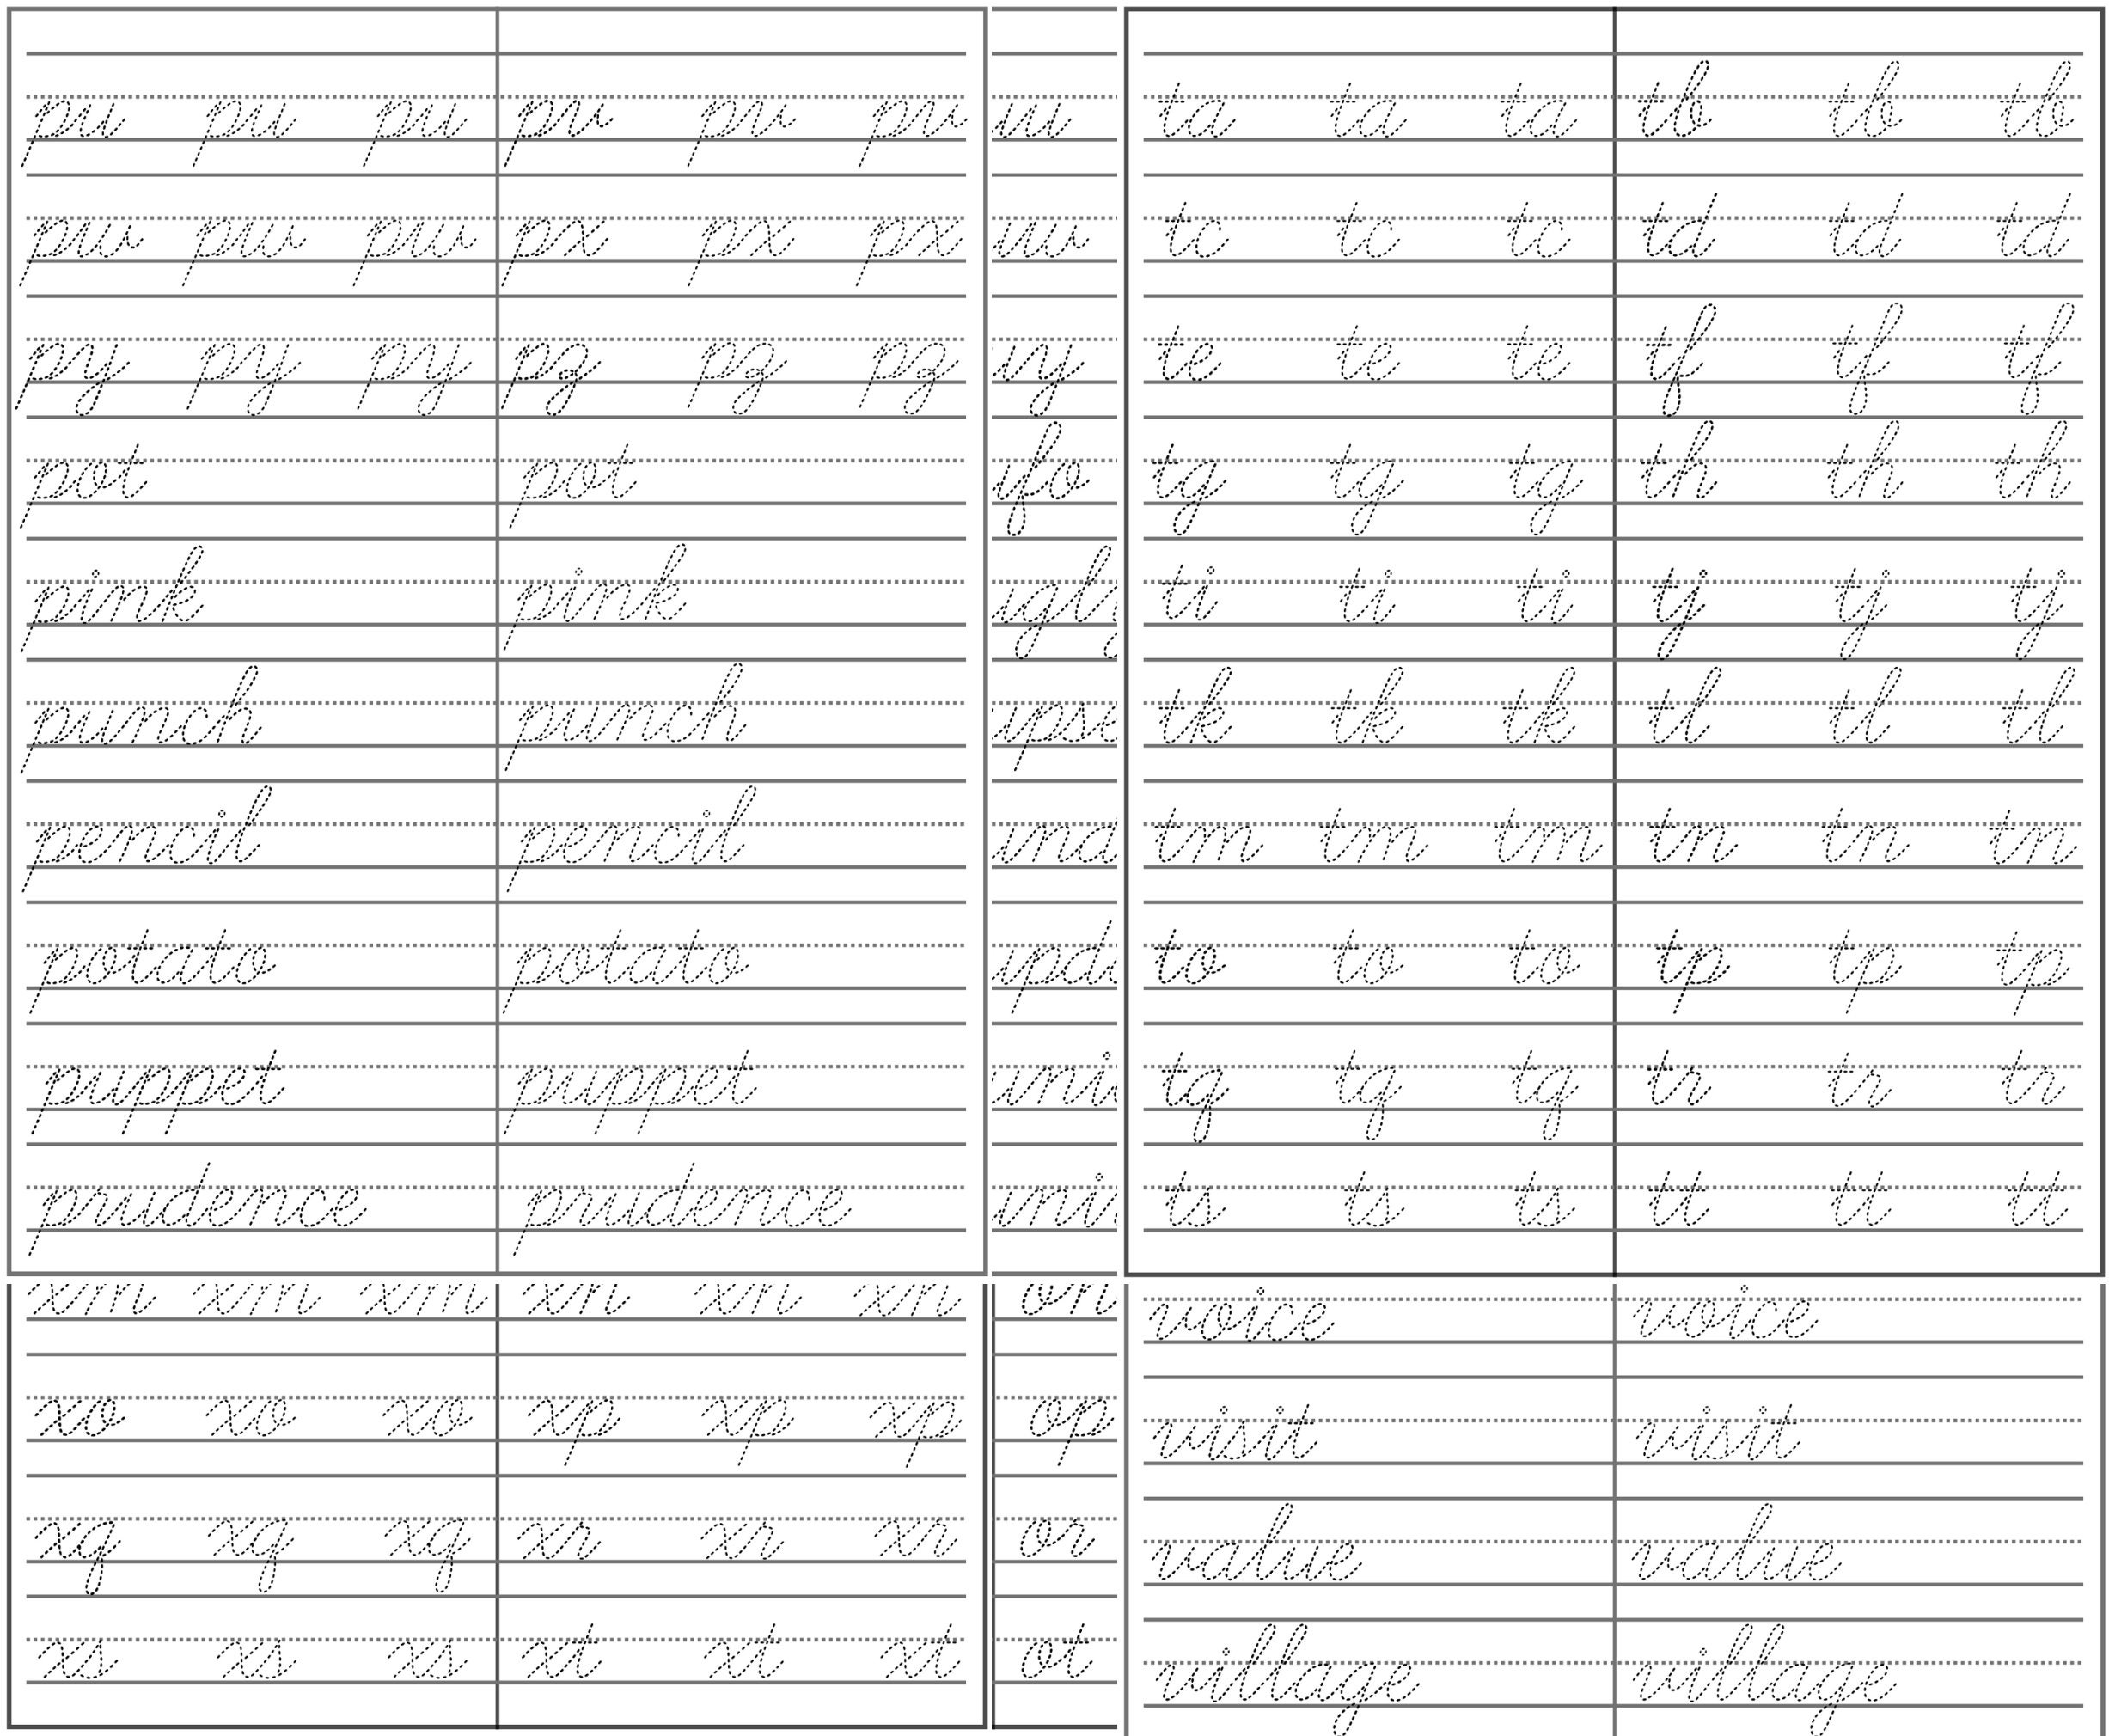 pu pu pu pv pv pv
pw pw pw px px px
py py py pz pz pz
pot pot
pink pink
punch punch
pencil pencil
potato potato
puppet puppet
prudence prudence
ta ta ta tb tb tb
tc tc tc td td td
te te te tf tf tf
tg tg tg th th th
ti ti ti tj tj tj
tk tk tk tl tl tl
tm tm tm tn tn tn
to to to tp tp tp
tq tq tq tr tr tr
ts ts ts tt tt tt
xm xm xm xn xn xn
xo xo xo xp xp xp
xq xq xq xr xr xr
xs xs xs xt xt xt
on
op
or
ot
voice voice
visit visit
value value
village village